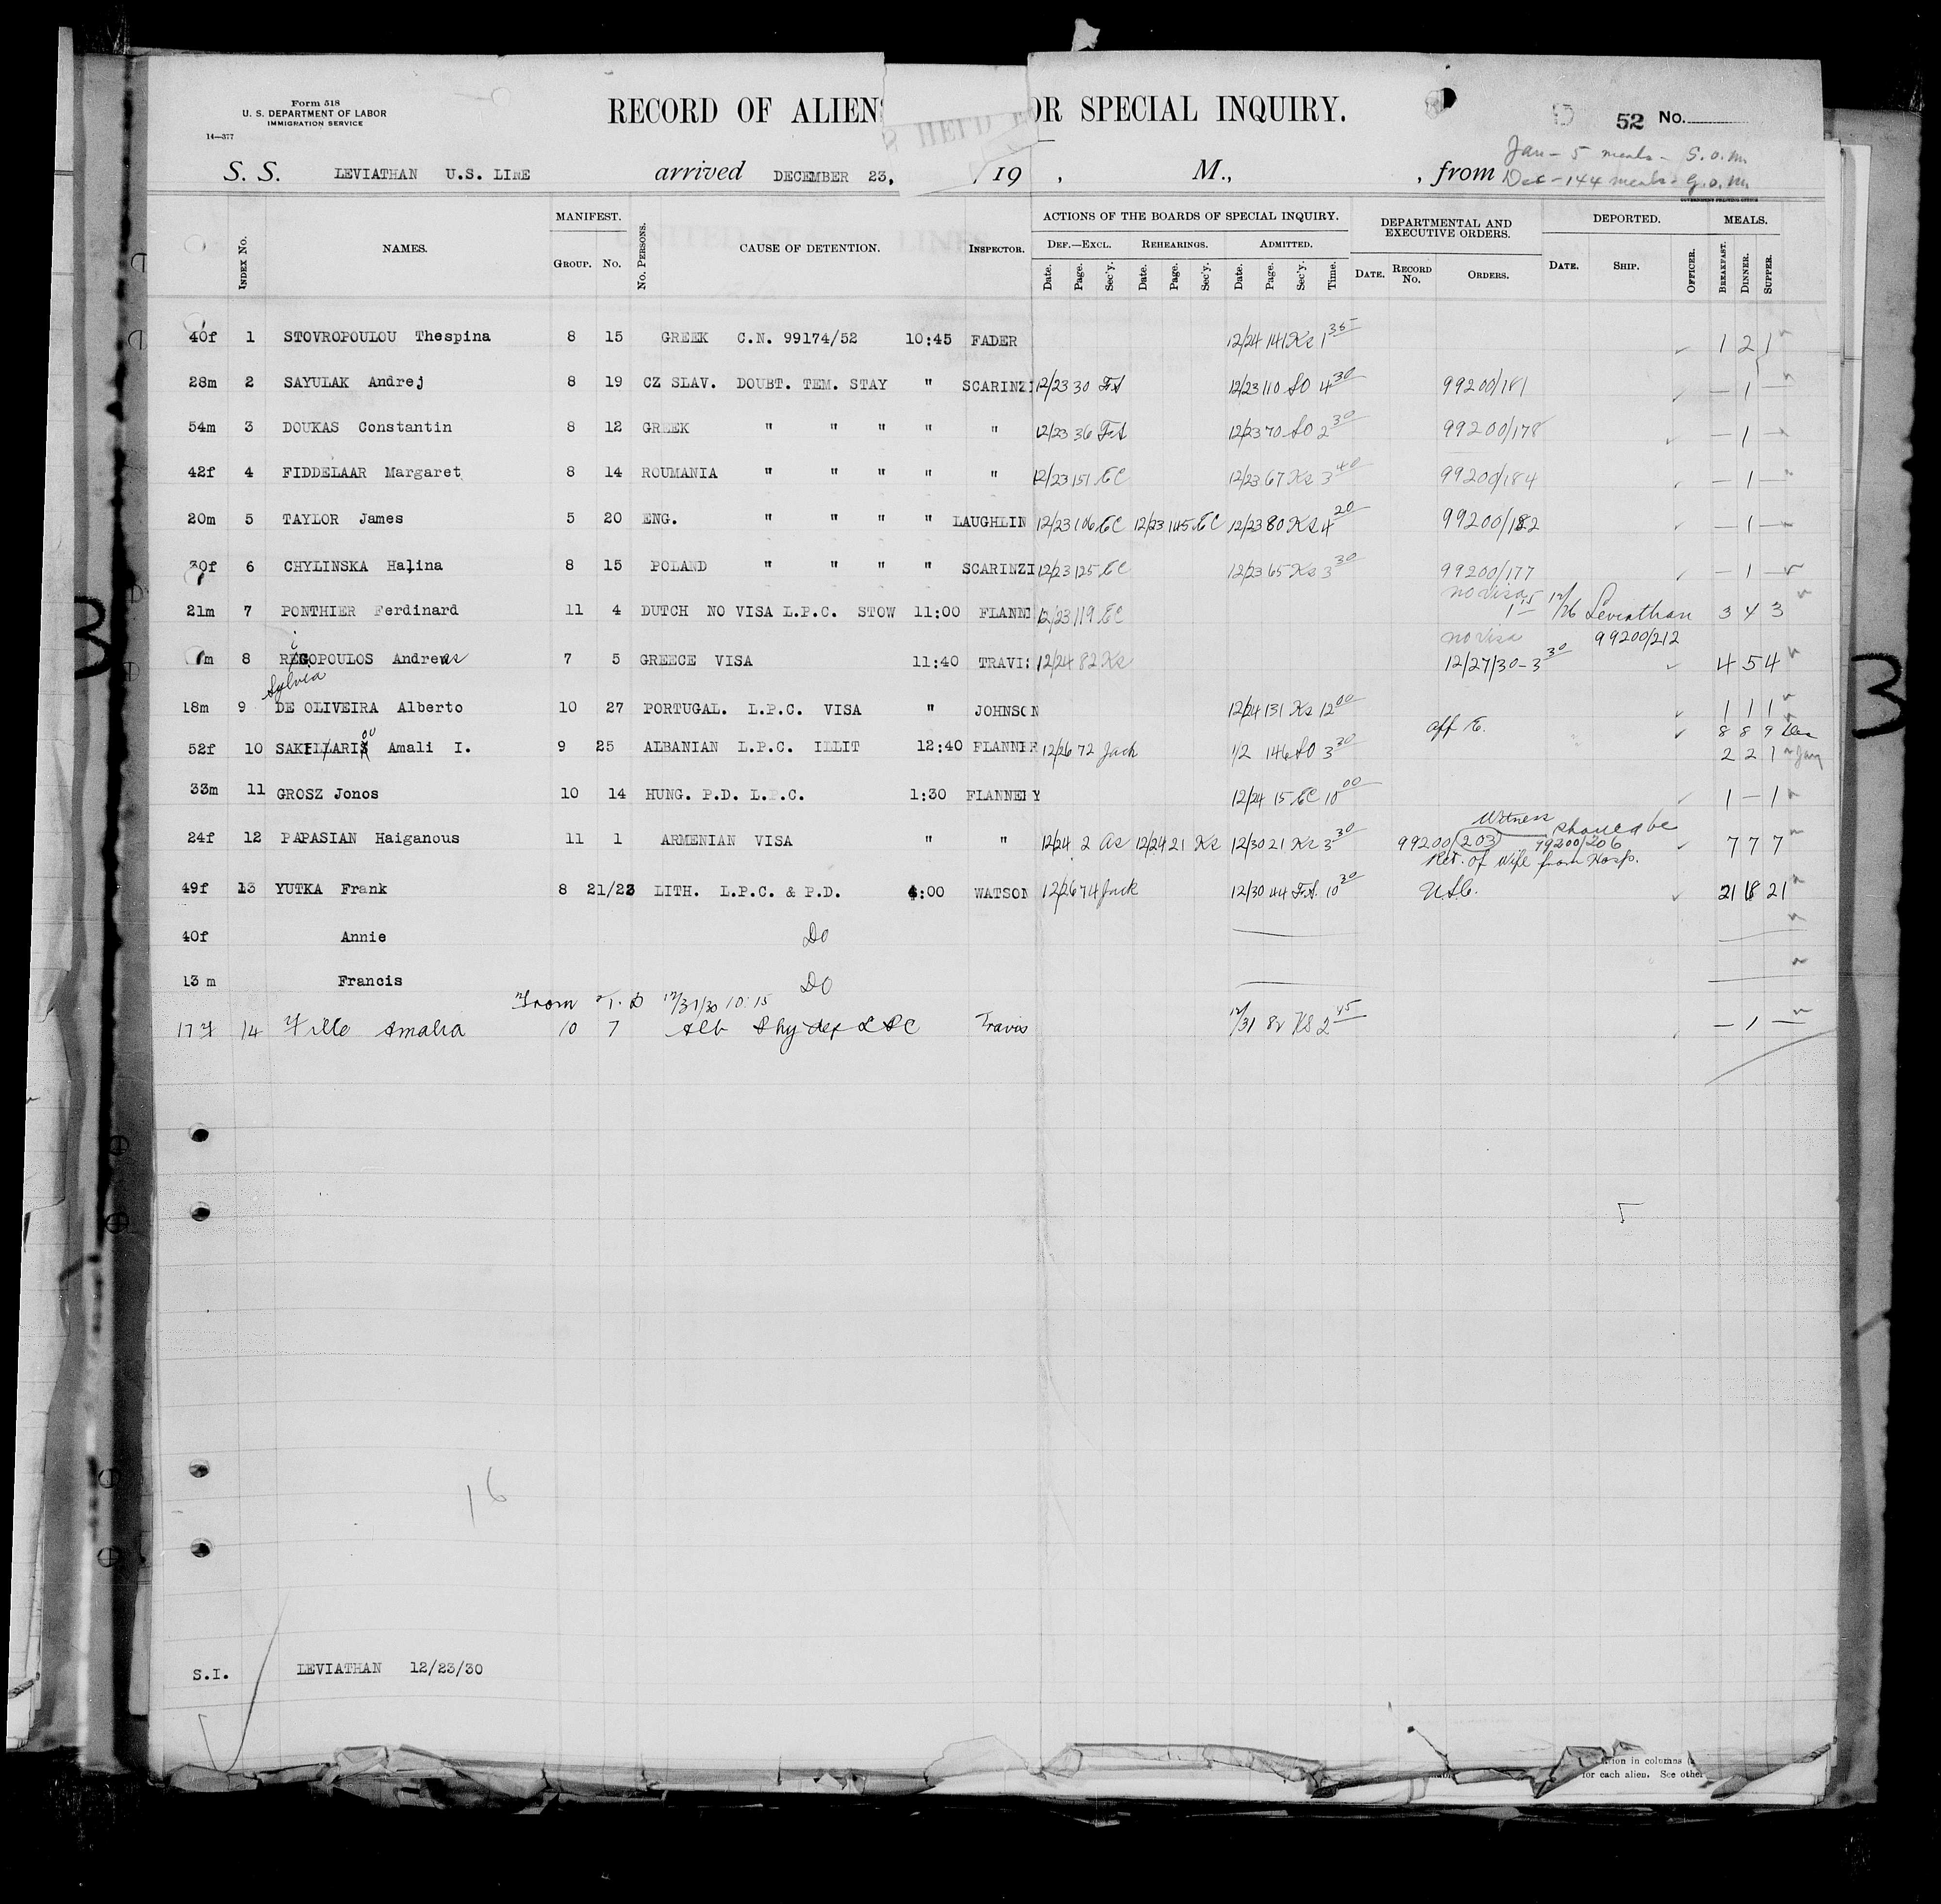 Form 518
U. S. DEPARTMENT OF LABOR
IMMIGRATION SERVICE
14—377
RECORD OF ALIENS HELD FOR SPECIAL INQUIRY.
52 No.
Jan - 5 meals - S.O.M.
Dec - 144 meals - G.O.M.
S. S. LEVIATHAN U.S. LINE arrived DECEMBER 23, 19 , M., , from
GOVERNMENT PRINTING OFFICE
INDEX No. NAMES. MANIFEST. GROUP. No. No. PERSONS. CAUSE OF DETENTION. INSPECTOR. ACTIONS OF THE BOARDS OF SPECIAL INQUIRY. DEPARTMENTAL AND EXECUTIVE ORDERS. DEPORTED. MEALS.
DEF.—EXCL. REHEARINGS. ADMITTED.
Date. Page. Sec'y. Date. Page. Sec'y. Date. Page. Sec'y. Time. DATE. RECORD No. ORDERS. DATE. SHIP. OFFICER. BREAKFAST. DINNER. SUPPER.
40f 1 STOVROPOULOU Thespina 8 15 GREEK C.N. 99174/52 10:45 FADER 12/24 141 Ks 1 35 1 2 1
28m 2 SAYULAK Andrej 8 19 CZ SLAV. DOUBT. TEM. STAY " SCARINZI 12/23 30 FA 12/23 110 SO 4 30 99200/181 — 1 —
54m 3 DOUKAS Constantin 8 12 GREEK " " " " " 12/23 36 FA 12/23 70 SO 2 30 99200/178 — 1 —
42f 4 FIDDELAAR Margaret 8 14 ROUMANIA " " " " " 12/23 151 EC 12/23 67 Ks 3 40 99200/184 — 1 —
20m 5 TAYLOR James 5 20 ENG. " " " " LAUGHLIN 12/23 106 EC 12/23 145 EC 12/23 80 Ks 4 20 99200/182 — 1 —
30f 6 CHYLINSKA Halina 8 15 POLAND " " " " SCARINZI 12/23 125 EC 12/23 65 Ks 3 30 99200/177 — 1 —
no visa
21m 7 PONTHIER Ferdinard 11 4 DUTCH NO VISA L.P.C. STOW 11:00 FLANNE 12/23 119 EC 1 15 12/26 Leviathan 3 4 3
no visa 99200/212
m 8 REGOPOULOS Andreas 7 5 GREECE VISA 11:40 TRAVIS 12/24 82 Ks 12/27/30 - 3 30 4 5 4
Sylvia
18m 9 DE OLIVEIRA Alberto 10 27 PORTUGAL. L.P.C. VISA " JOHNSON 12/24 131 Ks 12 00 1 1 1
52f 10 SAKELLARIOU Amali I. 9 25 ALBANIAN L.P.C. ILLIT 12:40 FLANNER 12/26 72 Jack 1/2 146 SO 3 30 8 8 9 Dec
2 2 1 Jan
33m 11 GROSZ Jonos 10 14 HUNG. P.D. L.P.C. 1:30 FLANNELY 12/24 15 EC 10 00 1 — 1
Witness
24f 12 PAPASIAN Haiganous 11 1 ARMENIAN VISA " " 12/24 2 As 12/24 21 Ks 12/30 21 Ks 3 30 99200/203 should be 99200/206 7 7 7
Ret. of Wife from Hosp.
49f 13 YUTKA Frank 8 21/23 LITH. L.P.C. & P.D. 4:00 WATSON 12/26 74 Jack 12/30 44 F.A. 10 30 U.S.C. 21 18 21
40f Annie Do
13 m Francis Do
From T. D 12/31/30 10:15
17 f 14 Fille Amalia 10 7 Alb Phy def LPC Travis 12/31 82 KS 2 45 — 1 —
16
S.I. LEVIATHAN 12/23/30
tion in columns
for each alien. See other